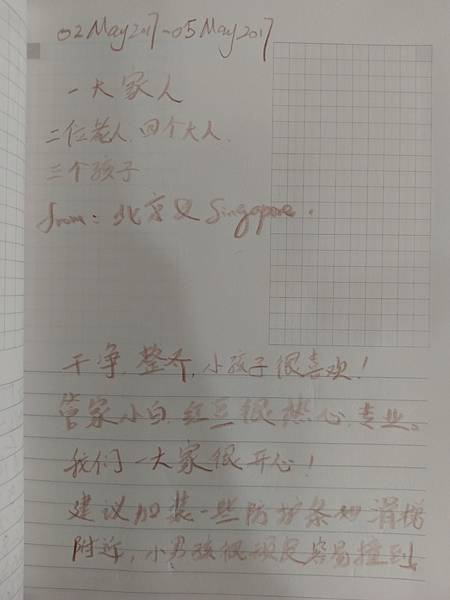 02 May 2017-05 May 2017
一大家人
二位老人、四个大人、
三个孩子
from: 北京 & Singapore.
干净、整齐,小孩子很喜欢!
管家小白、红豆很热心、专业。
我们一大家很开心!
建议加装一些防护条如滑梯
附近,小男孩很顽皮容易撞到